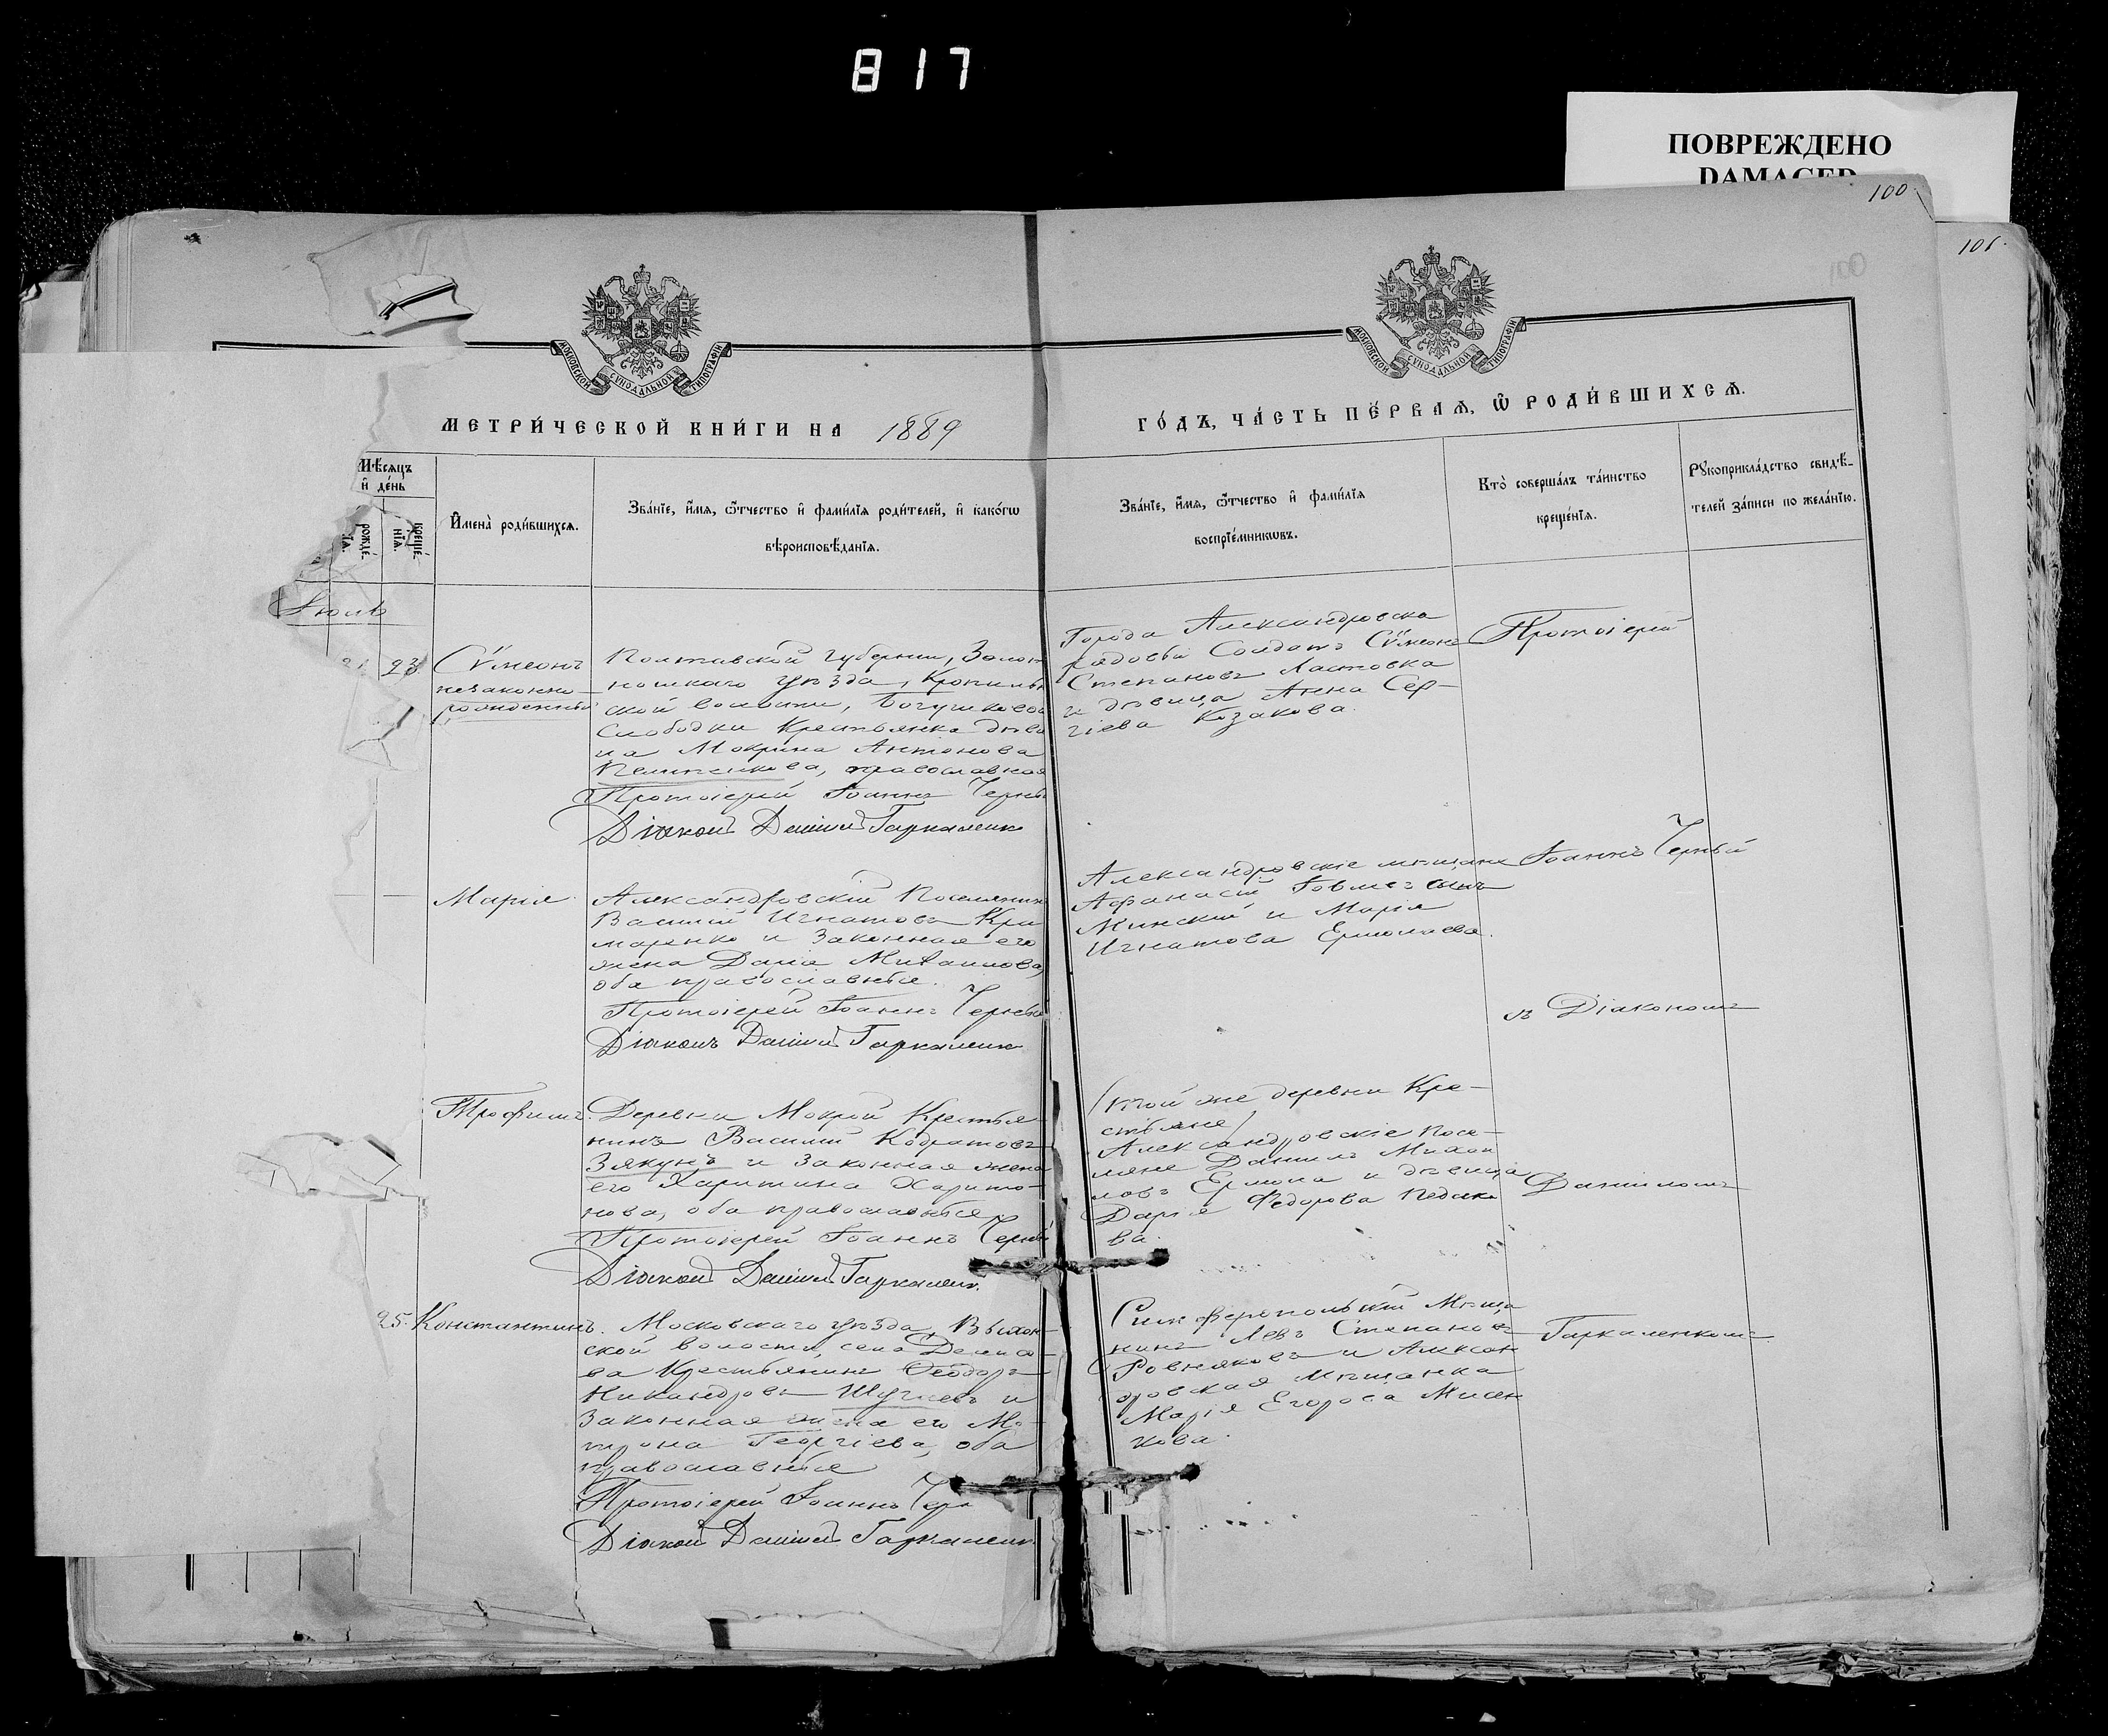 817
ПОВРЕЖДЕНО
DAMAGED
100
101.
МОСКОВСКОЙ СУНОДАЛЬНОЙ ТИПОГРАФІИ
МОСКОВСКОЙ СУНОДАЛЬНОЙ ТИПОГРАФІИ
МЕТРИ́ЧЕСКОЙ КНИ́ГИ НА 1889
ГО́ДЪ, ЧА́СТЬ ПЕ́РВАѦ, Ѿ РОДИ́ВШИХСѦ.
Мѣ́сѧцъ
и҆ де́нь
рожде́-
нїѧ.
креще́-
нїѧ.
И҆мена̀ роди́вшихсѧ.
Зва́нїе, и҆́мѧ, ѻ҆́тчество и҆ фами́лїѧ роди́телей, и҆ како́гѡ
вѣроисповѣ́данїѧ.
Зва́нїе, и҆́мѧ, ѻ҆́тчество и҆ фами́лїѧ
воспрїе́мникѡвъ.
Кто̀ соверша́лъ та́инство
креще́нїѧ.
Рꙋкоприкла́дство свидѣ́-
телей за́писи по жела́нїю.
Іюль
21 23
Сѵмеонъ
незаконно-
рожденный
Полтавской губерніи, Золот
ношскаго уѣзда, Кропивн
ской волости, Богушковой
слободки Крестьянка дѣви
ца Мокрина Антонова
православная
Протоіерей Іоаннъ Черны
Діаконъ Даніилъ Гаркаленко
Города Александровска
рядовый Солдатъ Сѵмеонъ
Степановъ Ластовка
и дѣвица Анна Сер-
гіева Козакова.
Протоіерей
Марія
Александровскій Поселянинъ
Василій Игнатовъ Кра
маренко и законная его
жена Дарія Михаилова,
оба православные.
Протоіерей Іоаннъ Черный
Діаконъ Даніилъ Гаркаленко
Александровскіе мѣщане
Афанасій сынъ
Минскій и Марія
Игнатова Ермолаева.
Іоаннъ Черный
съ Діакономъ
Трофимъ.
Деревни Мокрой Крестья
нинъ Василій Кодратовъ
Зякунъ и законная жена
его Харитина Харито-
нова, оба православные.
Протоіерей Іоаннъ Черный
Діаконъ Даніилъ Гаркаленк.
(той же деревни Кре-
стьяне)
Александровскіе посе-
ляне Даніилъ Михаи
ловъ Ермола и дѣвица
Дарія Федорова
ва.
Даніиломъ
25.
Константинъ.
Московскаго уѣзда,
ской волости, села
ва Крестьянинъ Ѳеодоръ
Никандровъ и
законная жена его Ма-
трона Георгіева, оба
православные
Протоіерей Іоаннъ Чер
Діаконъ Даніилъ Гаркаленк
Симферопольскій Мѣща
нинъ Левъ Степановъ
Ровняковъ и Алексан
дровская Мѣщанка
Марія Егорова Мисен
кова.
Гаркаленкомъ.